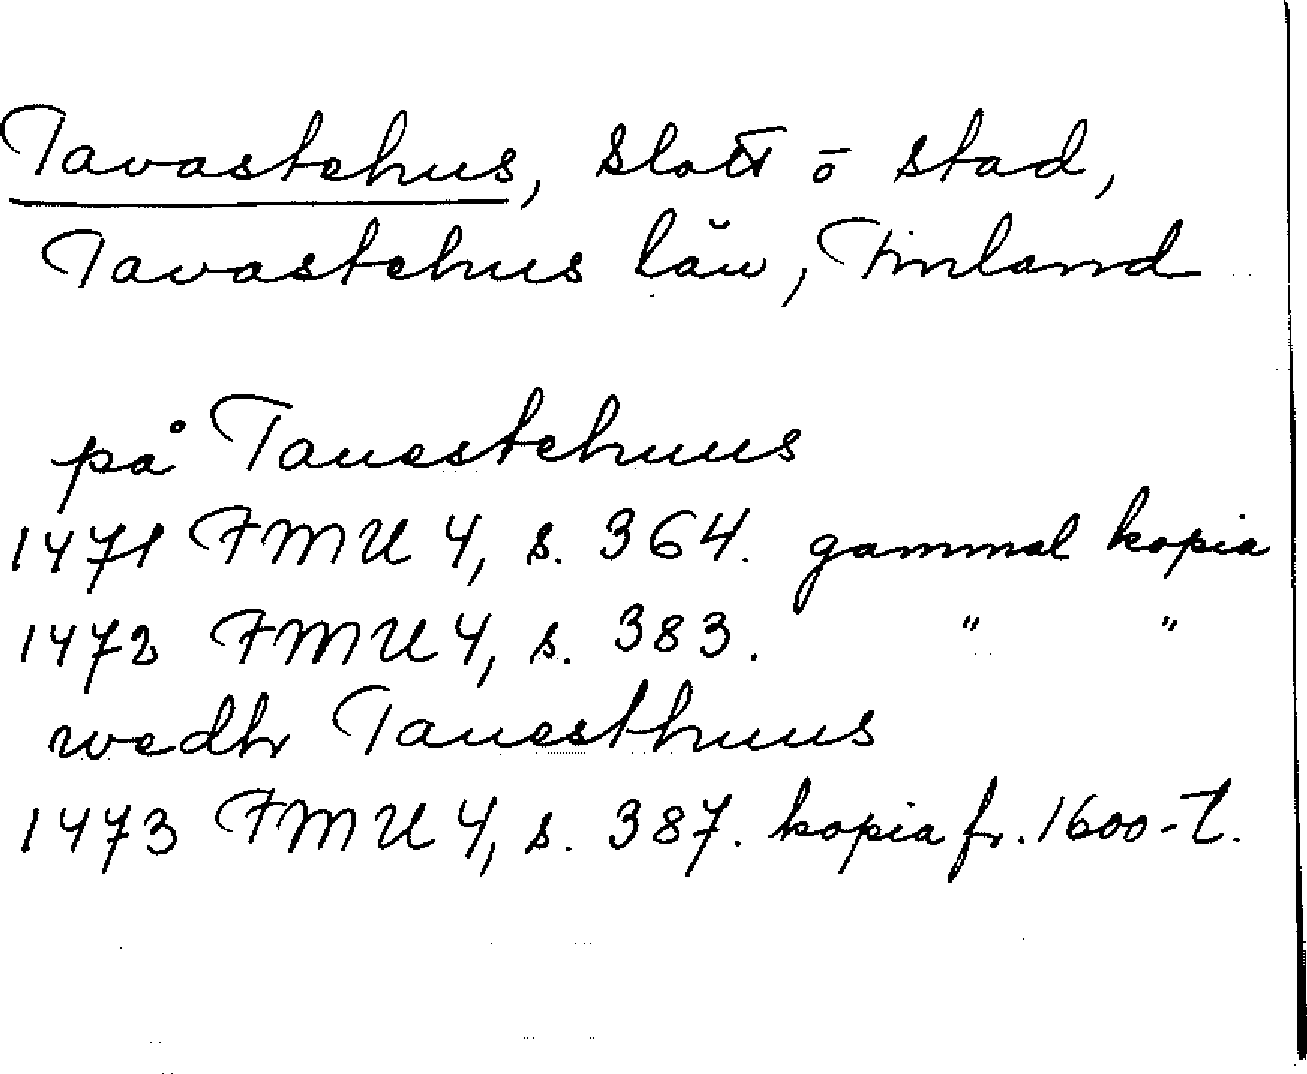 Tavastehus, slott ō stad,
Tavastehus län, Finland
på Tauestehuus
1471 FMU 4, s. 364. gammal kopia
1472 FMU 4, s. 383. " "
wedhr Tauesthuus
1473 FMU 4, s. 387. kopia fr. 1600-t.